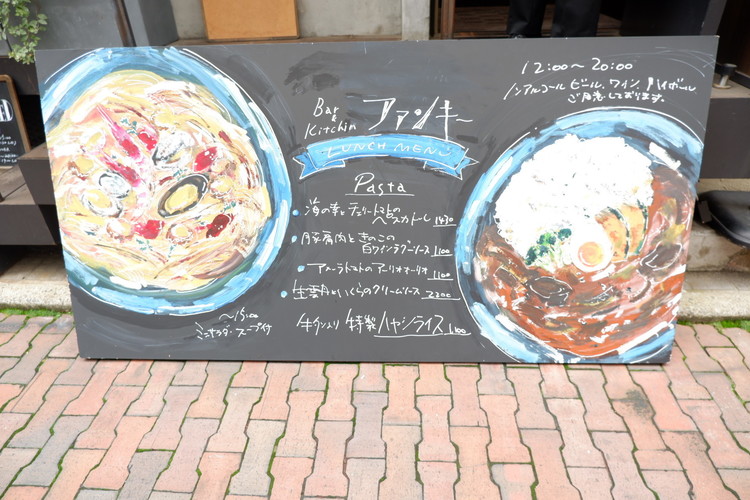 12:00～20:00
ノンアルコール ビール、ワイン、ハイボール
ご用意しております。
Bar
&
Kitchin
ファンキー
LUNCH MENU
Pasta
海の幸とチェリートマトの
ペスカトーレ 1430
豚肩肉ときのこの
白ワインラグーソース 1100
アメーラトマトのアーリオオーリオ 1100
生雲丹といくらのクリームソース 2200
牛タン入り 特製ハヤシライス 1100
～15:00
ミニサラダ・スープ付